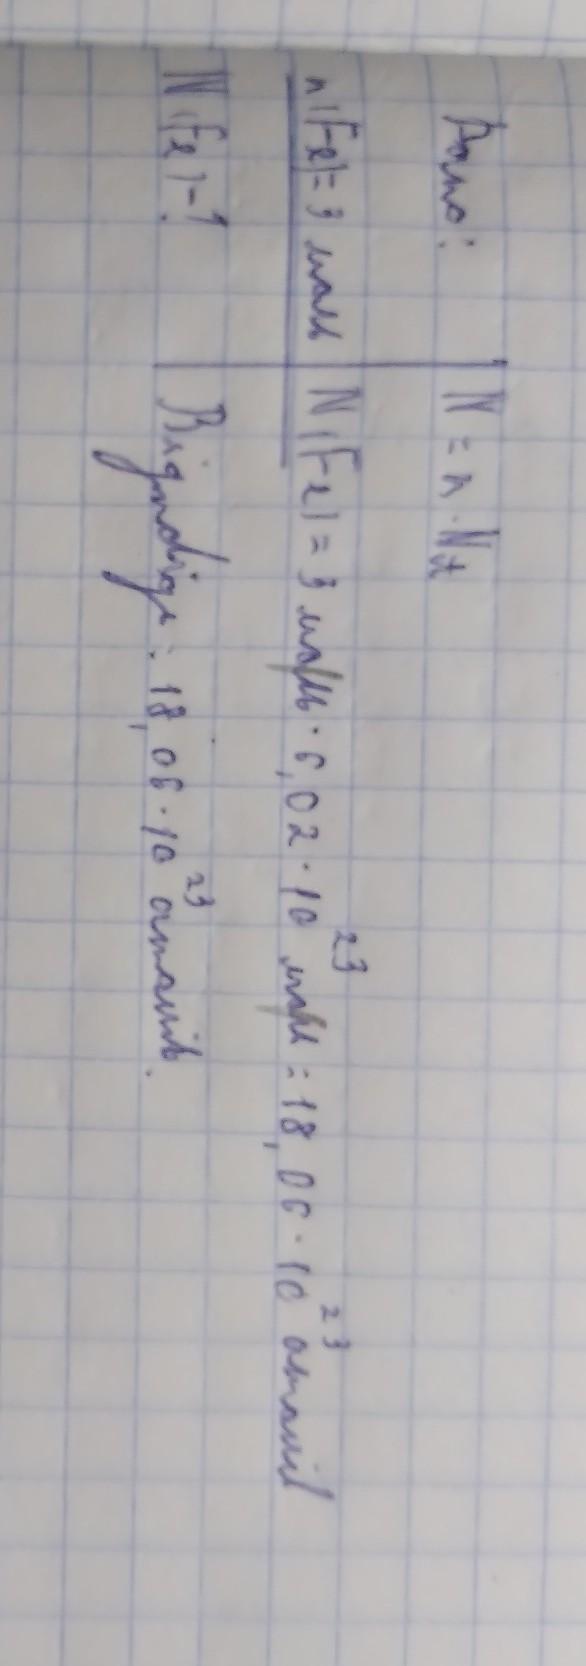 Дано:
n(Fe)=3 моль
N(Fe)-?
N = n · NA
N(Fe) = 3 моль · 6,02 · 10²³ моль = 18,06 · 10²³ атомів
Відповідь: 18,06 · 10²³ атомів.